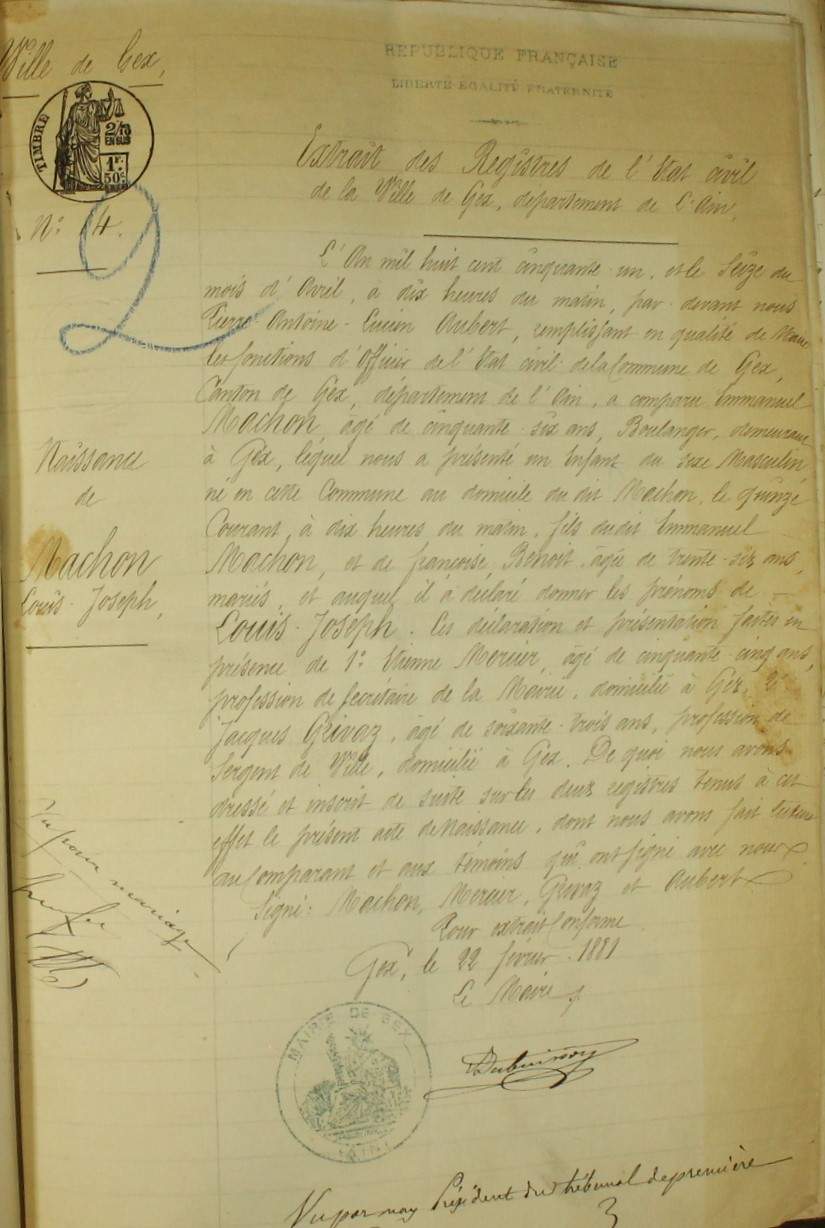 Ville de Gex,
REPUBLIQUE FRANÇAISE
LIBERTÉ ÉGALITÉ FRATERNITÉ
TIMBRE
2/10
EN SUS
1F.
50c.
N° 14.
2
Extrait des Registres de l'Etat civil
de la Ville de Gex, département de l'Ain,
L'An mil huit cent cinquante un, et le Seize du
mois d'Avril, à dix heures du matin, par devant nous
Pierre-Antoine-Lucien Aubert, remplissant en qualité de Maire
les fonctions d'Officier de l'Etat civil de la Commune de Gex,
Canton de Gex, département de l'Ain, a comparu Emmanuel
Machon, âgé de cinquante-six ans, Boulanger, demeurant
à Gex, lequel nous a présenté un Enfant du sexe Masculin
né en cette Commune au domicile du dit Machon, le quinze
Courant, à dix heures du matin, fils dudit Emmanuel
Machon, et de françoise Benoit, âgée de trente-six ans,
mariés, et auquel il a déclaré donner les prénoms de
Louis-Joseph. Ces déclaration et présentation faites en
présence de 1° Etienne Mercier, âgé de cinquante-cinq ans,
profession de Secrétaire de la Mairie, domicilié à Gex, 2°
Jacques Grivaz, âgé de soixante-trois ans, profession de
Sergent de Ville, domicilié à Gex. De quoi nous avons
dressé et inscrit de suite sur les deux registres tenus à cet
effet le présent acte de Naissance, dont nous avons fait lecture
au Comparant et aux témoins qui ont signé avec nous
Signé: Machon, Mercier, Grivaz et Aubert
Pour extrait Conforme
Gex, le 22 février 1881
Le Maire
Naissance
de
Machon
Louis-Joseph,
Vu pour mariage
MAIRIE DE GEX
(AIN)
Dubuisson
Vu par nous Président du tribunal de première